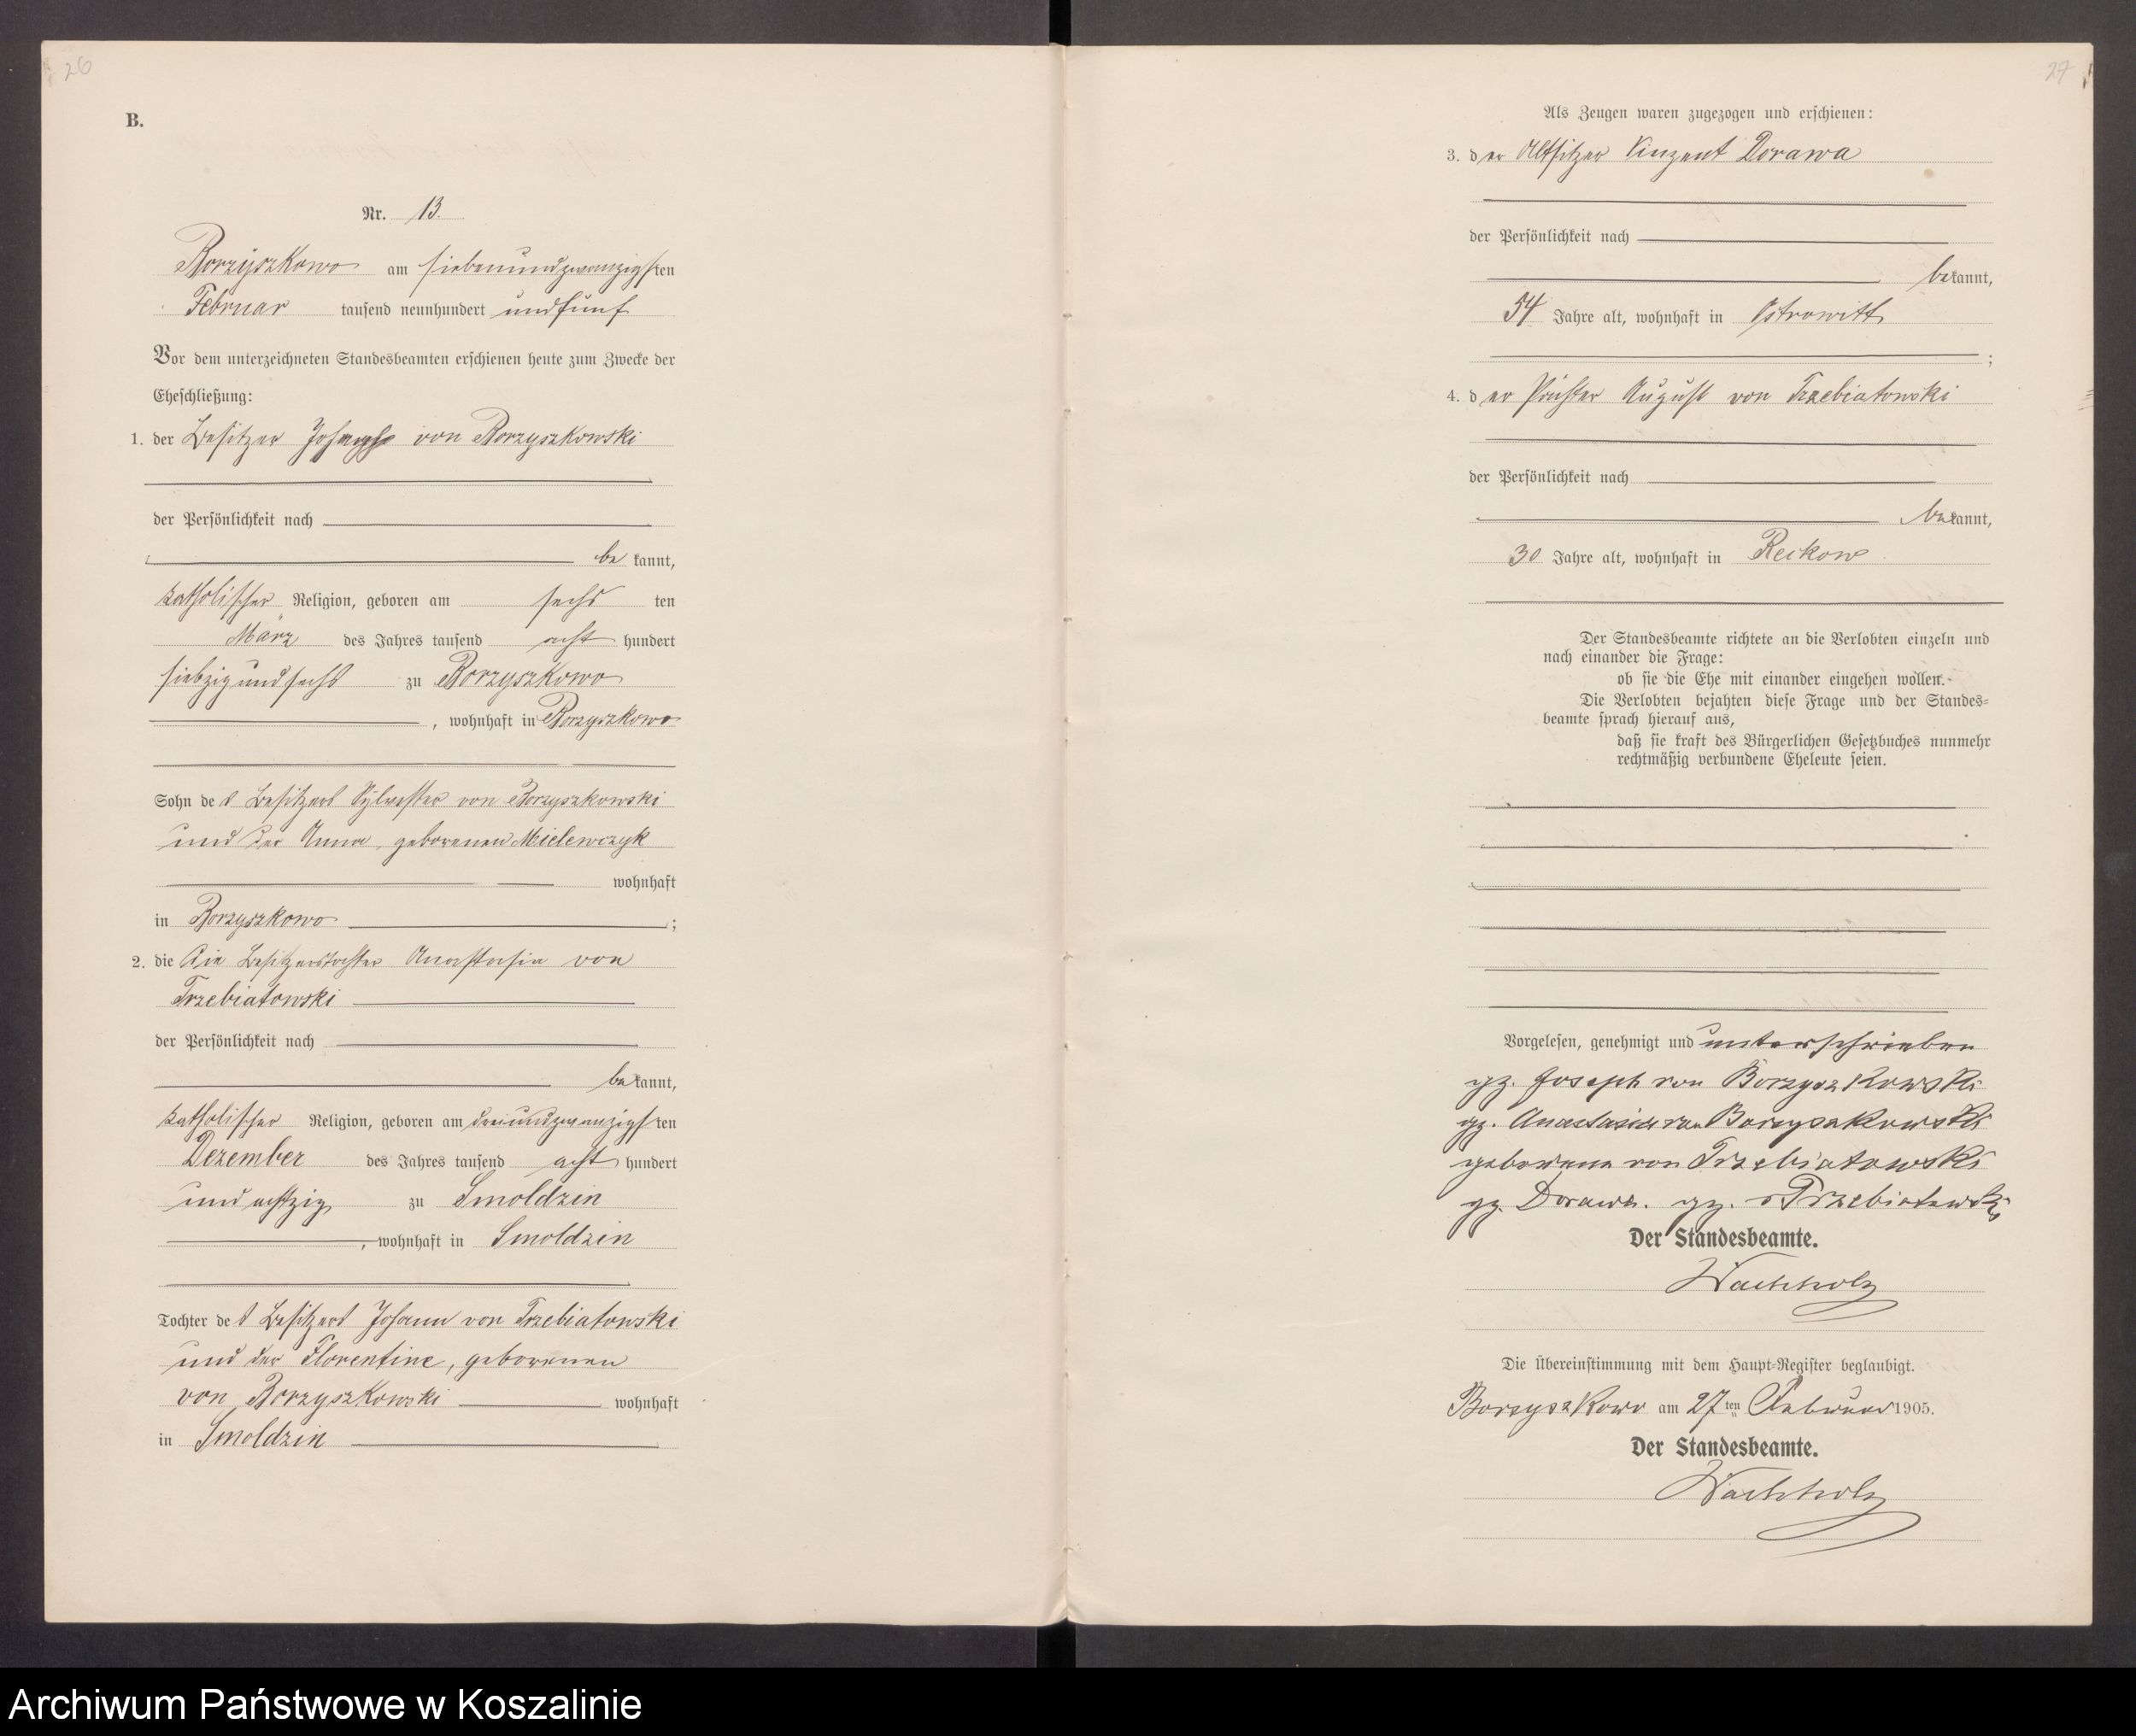 26
B.
Nr. 13.
Borzyszkowo am siebenundzwanzigsten
Februar tausend neunhundert undfünf
Vor dem unterzeichneten Standesbeamten erschienen heute zum Zwecke der
Eheschließung:
1. der Besitzer Joseph von Borzyszkowski
der Persönlichkeit nach
be kannt,
katholischer Religion, geboren am sechs ten
März des Jahres tausend acht hundert
siebzig und sechs zu Borzyszkowo
, wohnhaft in Borzyszkowo
Sohn des Besitzers Sylvester von Borzyszkowski
und der Anna, geborenen Mielewczyk
wohnhaft
in Borzyszkowo ;
2. die die Besitzerstochter Anastasia von
Trzebiatowski
der Persönlichkeit nach
bekannt,
katholischer Religion, geboren am dreiundzwanzigsten
Dezember des Jahres tausend acht hundert
und achtzig zu Smoldzin
, wohnhaft in Smoldzin
Tochter des Besitzers Johann von Trzebiatowski
und der Florentine, geborenen
von Borzyszkowski wohnhaft
in Smoldzin
27
Als Zeugen waren zugezogen und erschienen:
3. der Altsitzer Vinzent Dorawa
der Persönlichkeit nach
bekannt,
54 Jahre alt, wohnhaft in Ostrowitt
;
4. der August von Trzebiatowski
der Persönlichkeit nach
bekannt,
30 Jahre alt, wohnhaft in Reckow
Der Standesbeamte richtete an die Verlobten einzeln und
nach einander die Frage:
ob sie die Ehe mit einander eingehen wollen.
Die Verlobten bejahten diese Frage und der Standes-
beamte sprach hierauf aus,
daß sie kraft des Bürgerlichen Gesetzbuches nunmehr
rechtmäßig verbundene Eheleute seien.
Vorgelesen, genehmigt und unterschrieben
gz. Joseph von Borzyszkowski
gz. Anastasia von Borzyszkowski
geborene von Trzebiatowski
gz. Dorawa. gz. v Trzebiatowski
Der Standesbeamte.
Wachholz
Die Übereinstimmung mit dem Haupt-Register beglaubigt.
Borzyszkowo am 27ten Februar 1905.
Der Standesbeamte.
Wachholz
Archiwum Państwowe w Koszalinie